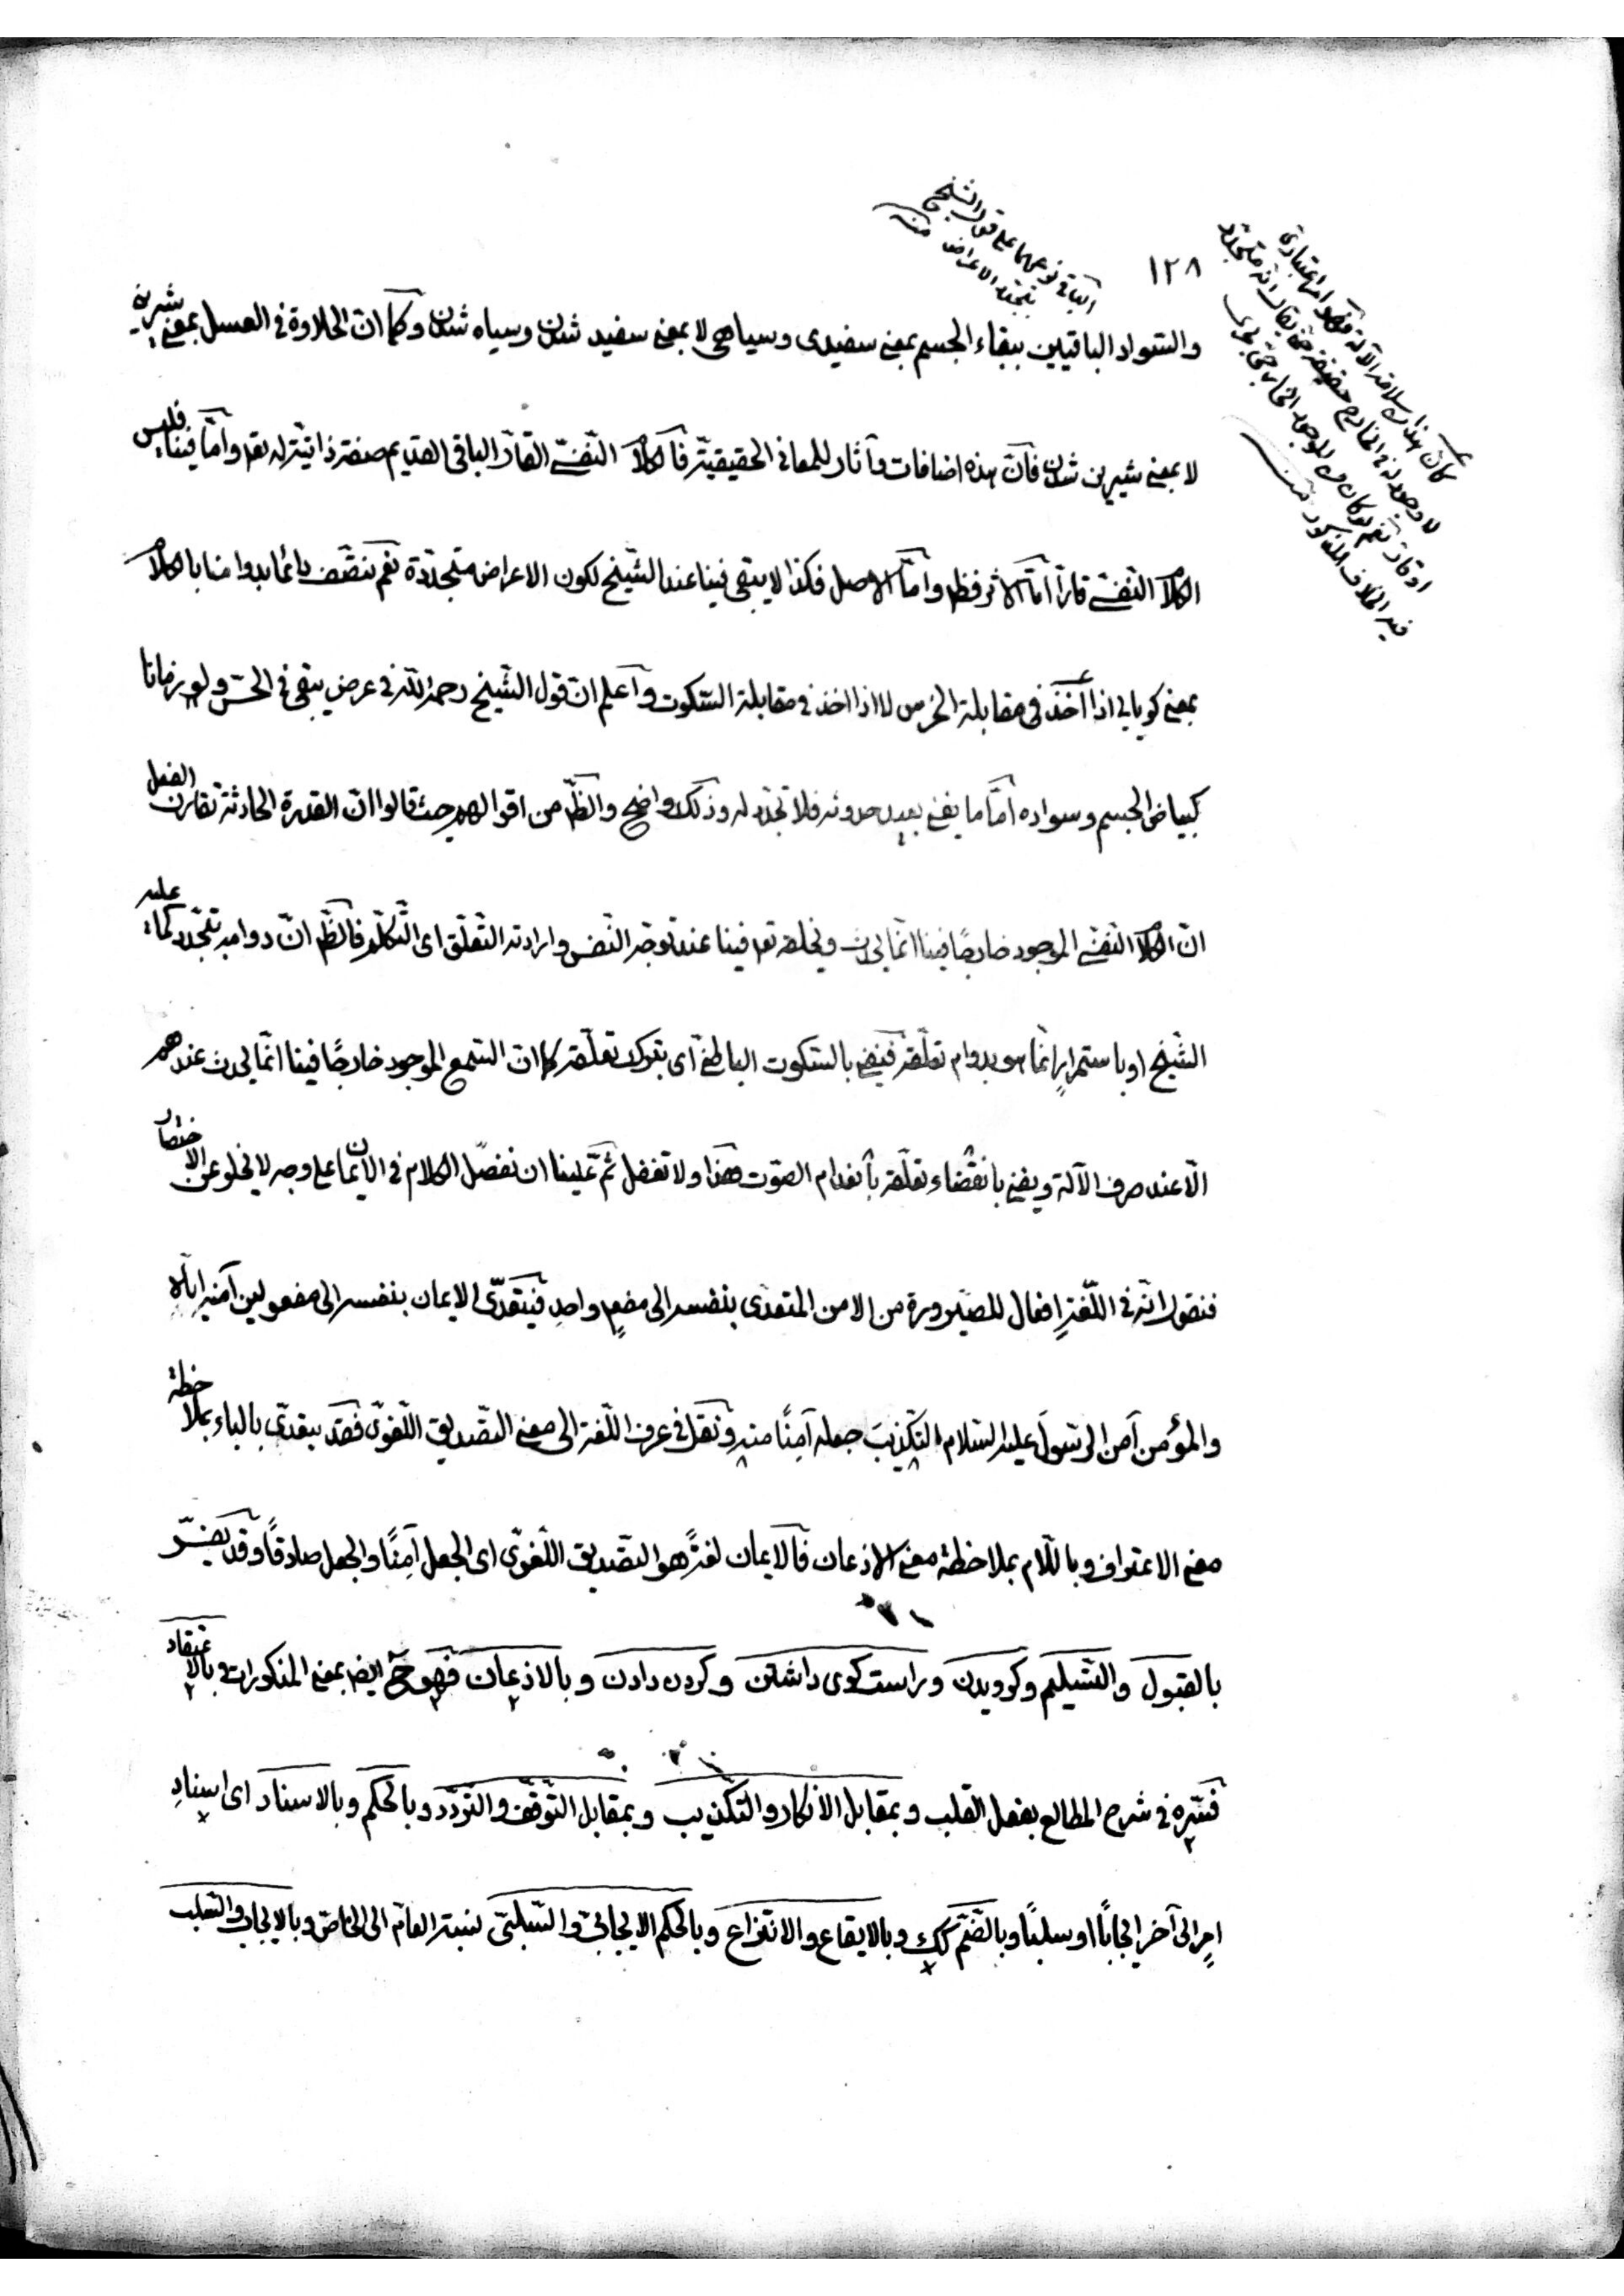 ١٢٨
الباقي نوعهما على قول الشيخ
بتجدد الاعراض منه
كان هذا سلامة الآلة فهو امر اعتباري
لا وجود له في الخارج حقيقة حتى يقال انه متجدد
او قار نعم لو كان من الموجود الخارجي يجري
فيه الخلاف المذكور منه
والسّواد الباقيين ببقاء الجسم بمعنى سفيدى وسياهى لا بمعنى سفيد شدن وسياه شدن وكما انّ الحلاوة في العسل بمعنى شيرينى
لا بمعنى شيرين شدن فانّ هذه اضافات وآثار للمعاني الحقيقيّة فالكلام النّفسى القارّ الباقى القديم صفة ذاتيّة له تعه وامّا فينا فليس
الكلام النّفسى قارّاً امّا الاثر فظه وامّا الاصل فكذا لا يبقى فينا عند الشّيخ لكون الاعراض متجدّدة نعم نتّصف دائما بدوامنا بالكلام
بمعنى كويايى اذا أخذ في مقابلة الخرس لا اذا اخذ في مقابلة السّكوت واعلم انّ قول الشّيخ رحمه الله في عرض يبقى في الحسّ ولو زمانا
كبياض الجسم وسواده امّا ما يفنى بعيد حدوثه فلا تجدّد له وذلك واضح والظّه من اقوالهم حيث قالوا انّ القدرة الحادثة تقارن الفعل
انّ الكلام النّفسى الموجود خارجًا فينا انّما يحدث ويخلقه تعه فينا عند توجّه النّفس وارادته التّعلّق اى التّكلّم فالظّه انّ دوامه بتجدّد كما عليه
الشّيخ او باستمرارٍ انّما هو بدوام تعلّقه فيفنى بالسّكوت الباطنى اى بترك تعلّقه كما انّ السّمع الموجود خارجًا فينا انّما يحدث عندهم
الّا عند صرف الآلة ويفنى بانقضاء تعلّقه بانعدام الصّوت هذا ولا تغفل ثمّ علينا ان نفصّل الكلام في الايمان على وجه لا يخلو عن الاختصار
فنقول انّه في اللّغة افعال للصّيرورة من الامن المتعدّى بنفسه الى مفعٍ واحدٍ فيتعدّى الايمان بنفسه الى مفعولين آمنه ايّاه
والمؤمن آمن الرّسولَ عليه السّلام التّكذيبَ جعله آمِنًا منه ونقل في عرف اللّغة الى معنى التّصديق اللّغوىّ فقد يتعدّى بالباء بملاحظة
معنى الاعتراف وباللّام بملاحظة معنى الاذعان فالايمان لغةً هو التّصديق اللّغوىّ اى الجعل آمِنًا والجعل صادقًا وقد يفسّر
بالقبول والتّسليم وكرويدن وراست كوى داشتن وكردن دادن وبالاذعان فهو ح ايضا بمعنى المذكورات وبالاعتقاد
فسّره في شرح المطالع بفعل القلب وبمقابل الانكار والتّكذيب وبمقابل التّوقّف والتّردّد وبالحكم وبالاسناد اى اسنادِ
امرٍ الى آخر ايجابًا او سلبًا وبالضّمّ كك وبالايقاع والانتزاع وبالحكم الايجابىّ والسّلبىّ لنسبة العامّ الى الخاصّ وبالايجاب والسّلب